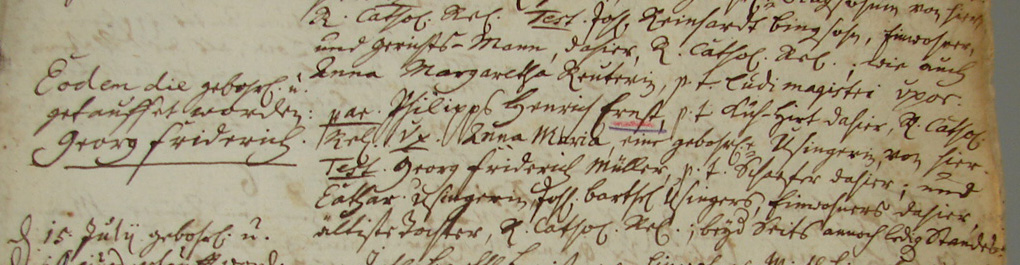 von hier
R. Cathol. Rel. Test. Joh. Reinhardt Bingsohn, Einwohner,
und Gerichts-Mann, dahier, R. Cathol. Rel.; wie auch
Anna Margaretha Reuterin, p. t. Ludimagistri uxor.
Eodem die gebohr. u.
getauffet worden:
Georg Friderich.
par. Philipps Henrich Ernst, p. t. Küh-Hirt dahier, R. Cathol.
Rel. Ux. Anna Maria, eine gebohrne Usingerin, von hier.
Test. Georg Friderich Müller, p. t. Schaefer dahier; und
Cathar. Usingerin, Joh. Barthel Usingers, Einwohners dahier
ältiste Tochter, R. Cathol. Rel.; beyd Seits annoch ledig Standes.
d. 15. Julij gebohr. u.